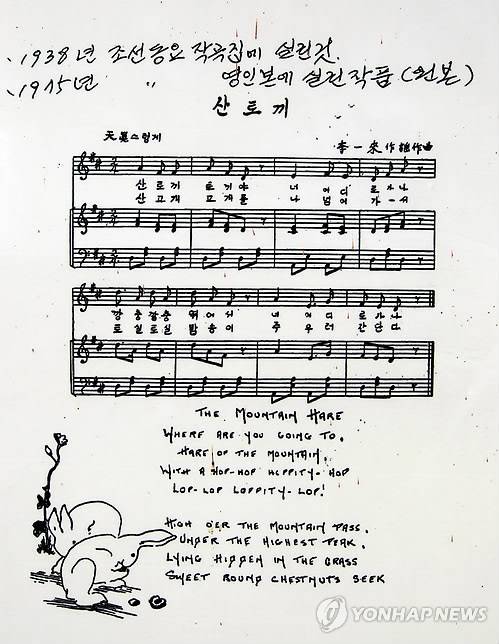 1938년 조선동요 작곡집에 실린것.
1975년 〃 영인본에 실린작품(원본)
산토끼
天眞스럽게
李一來 作謠作曲
산토끼 토끼야 너 어디로 가나
산고개 고개를 나 넘어 가-서
깡충깡충 뛰어서 너 어디 로가나
토실토실 밤송이 주우러 간단다
THE MOUNTAIN HARE
WHERE ARE YOU GOING TO,
HARE OF THE MOUNTAIN,
WITH A HOP-HOP HIPPITY-HOP
LOP-LOP LOPPITY-LOP!
HIGH O'ER THE MOUNTAIN PASS,
UNDER THE HIGHEST PEAK,
LYING HIDDEN IN THE GRASS
SWEET ROUND CHESTNUTS SEEK
YONHAP NEWS